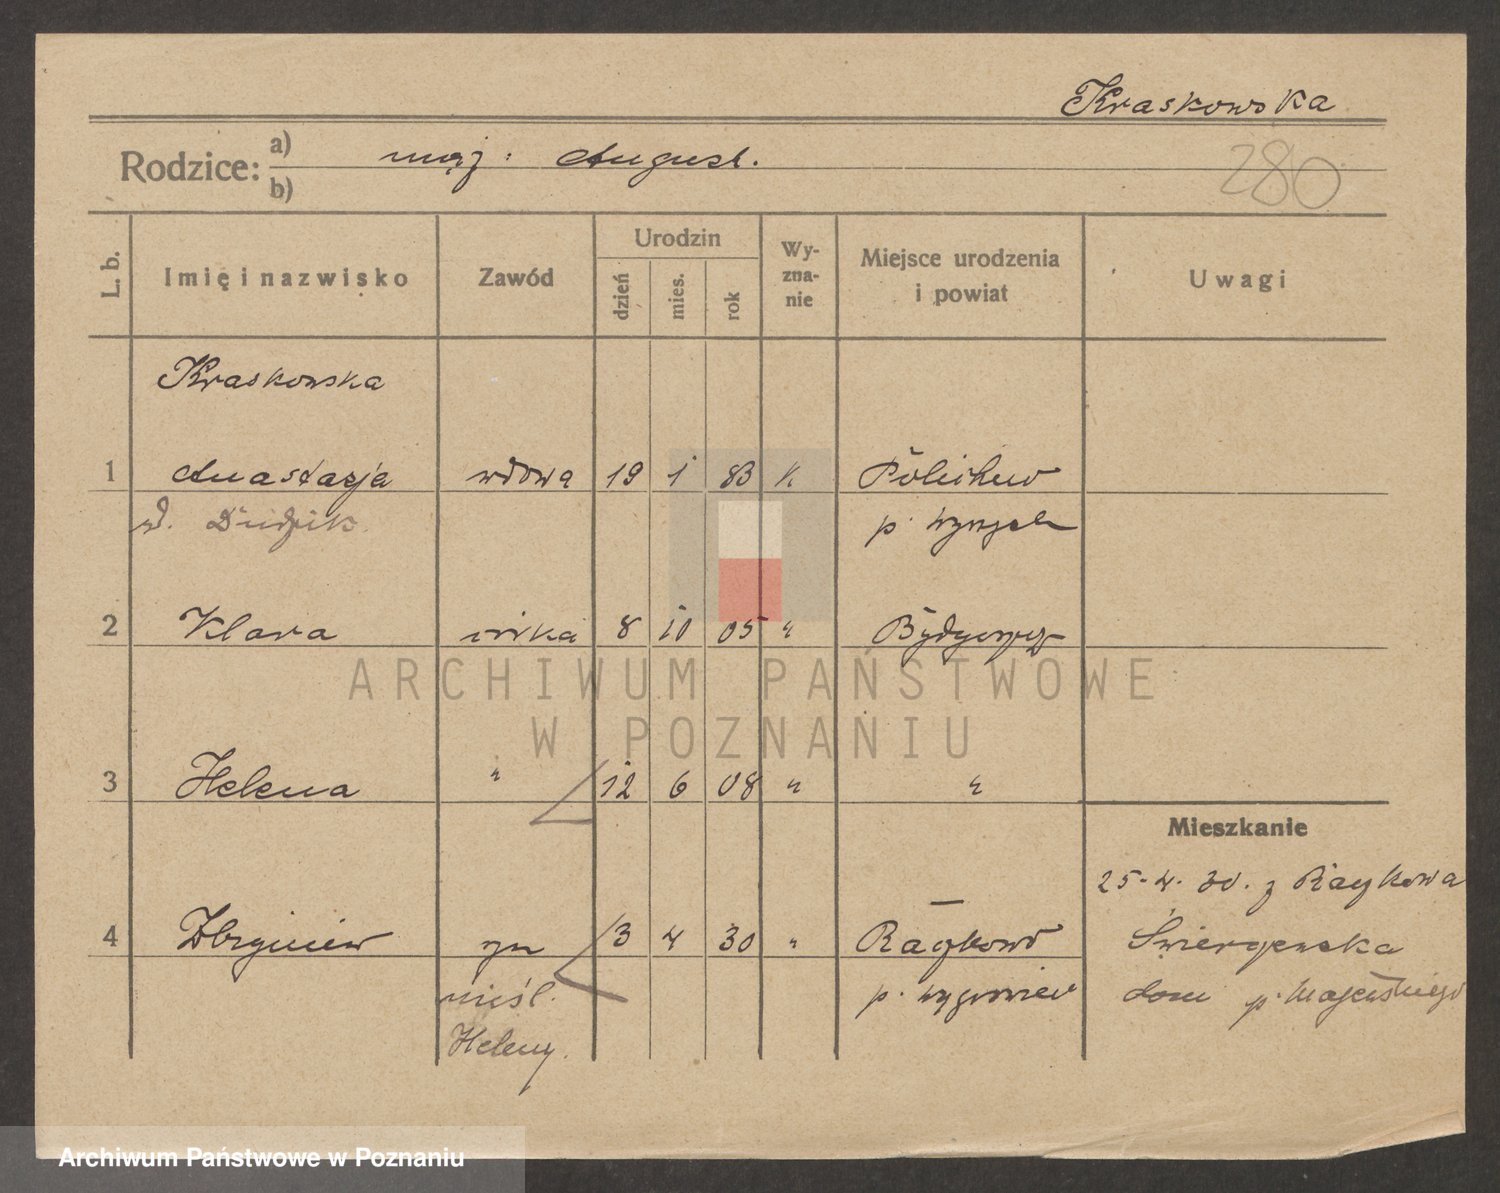 Kraskowska
Rodzice: a) mąż: August.
b)
280
L. b. Imię i nazwisko Zawód Urodzin dzień mies. rok Wy-zna-nie Miejsce urodzenia i powiat Uwagi
Kraskowska
1 Anastazja wdowa 19 1 83 k
d. Dudzik p.
2 Klara córka 8 10 05 " Bydgoszcz
3 Helena " 12 6 08 " "
Mieszkanie
25-4. 30. z Raczkowa
4 Zbigniew syn 3 4 30 " Raczkowo
nieśl. p.
Heleny. dom p.
ARCHIWUM PAŃSTWOWE
W POZNANIU
Archiwum Państwowe w Poznaniu